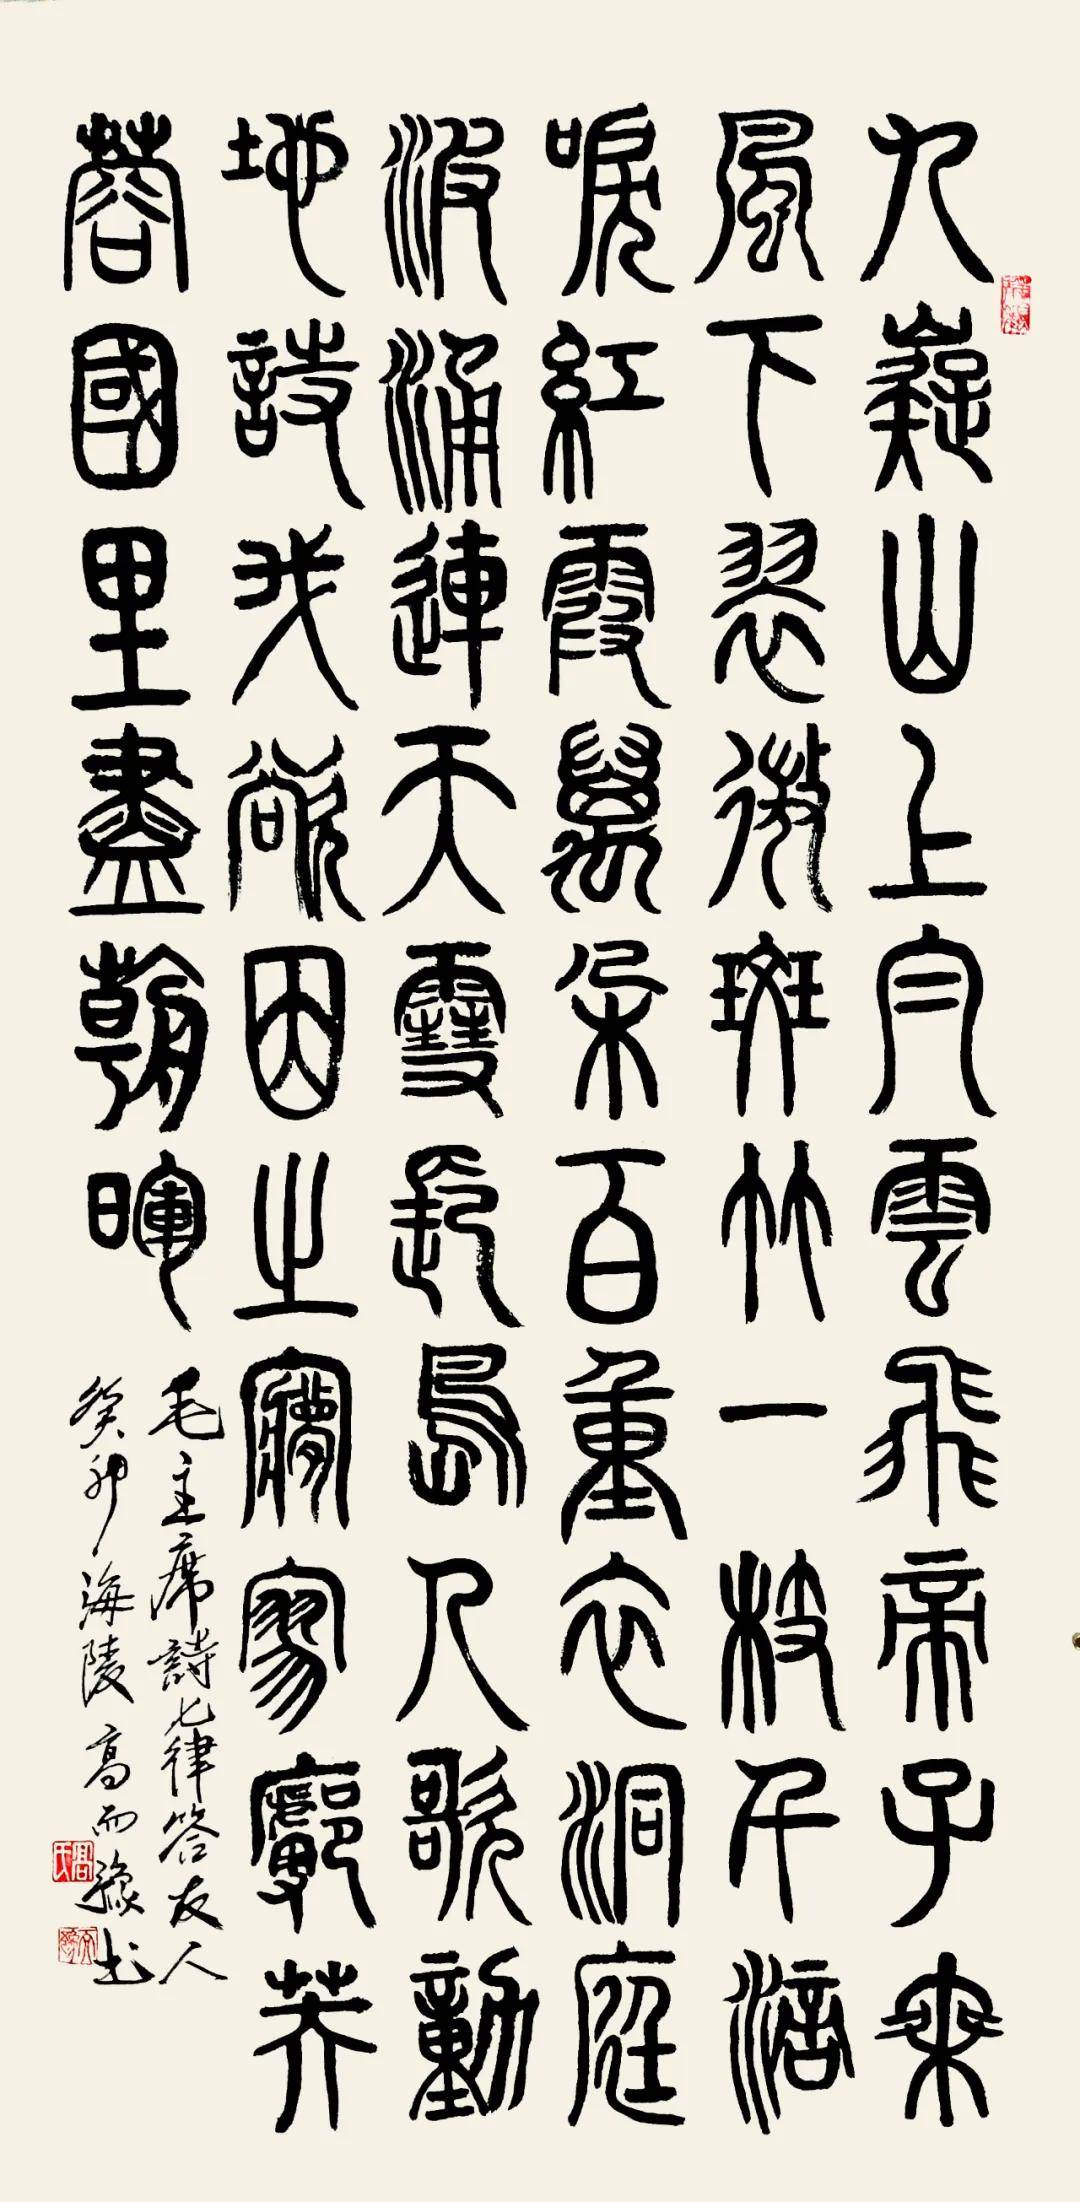 九嶷山上白雲飛帝子乘
風下翠微斑竹一枝千滴
唳紅霞萬朵百重衣洞庭
波涌連天雪長島人歌動
地詩我欲因之夢寥廓芙
蓉國里盡朝暉
毛主席詩七律答友人
癸卯海陵高而豫书